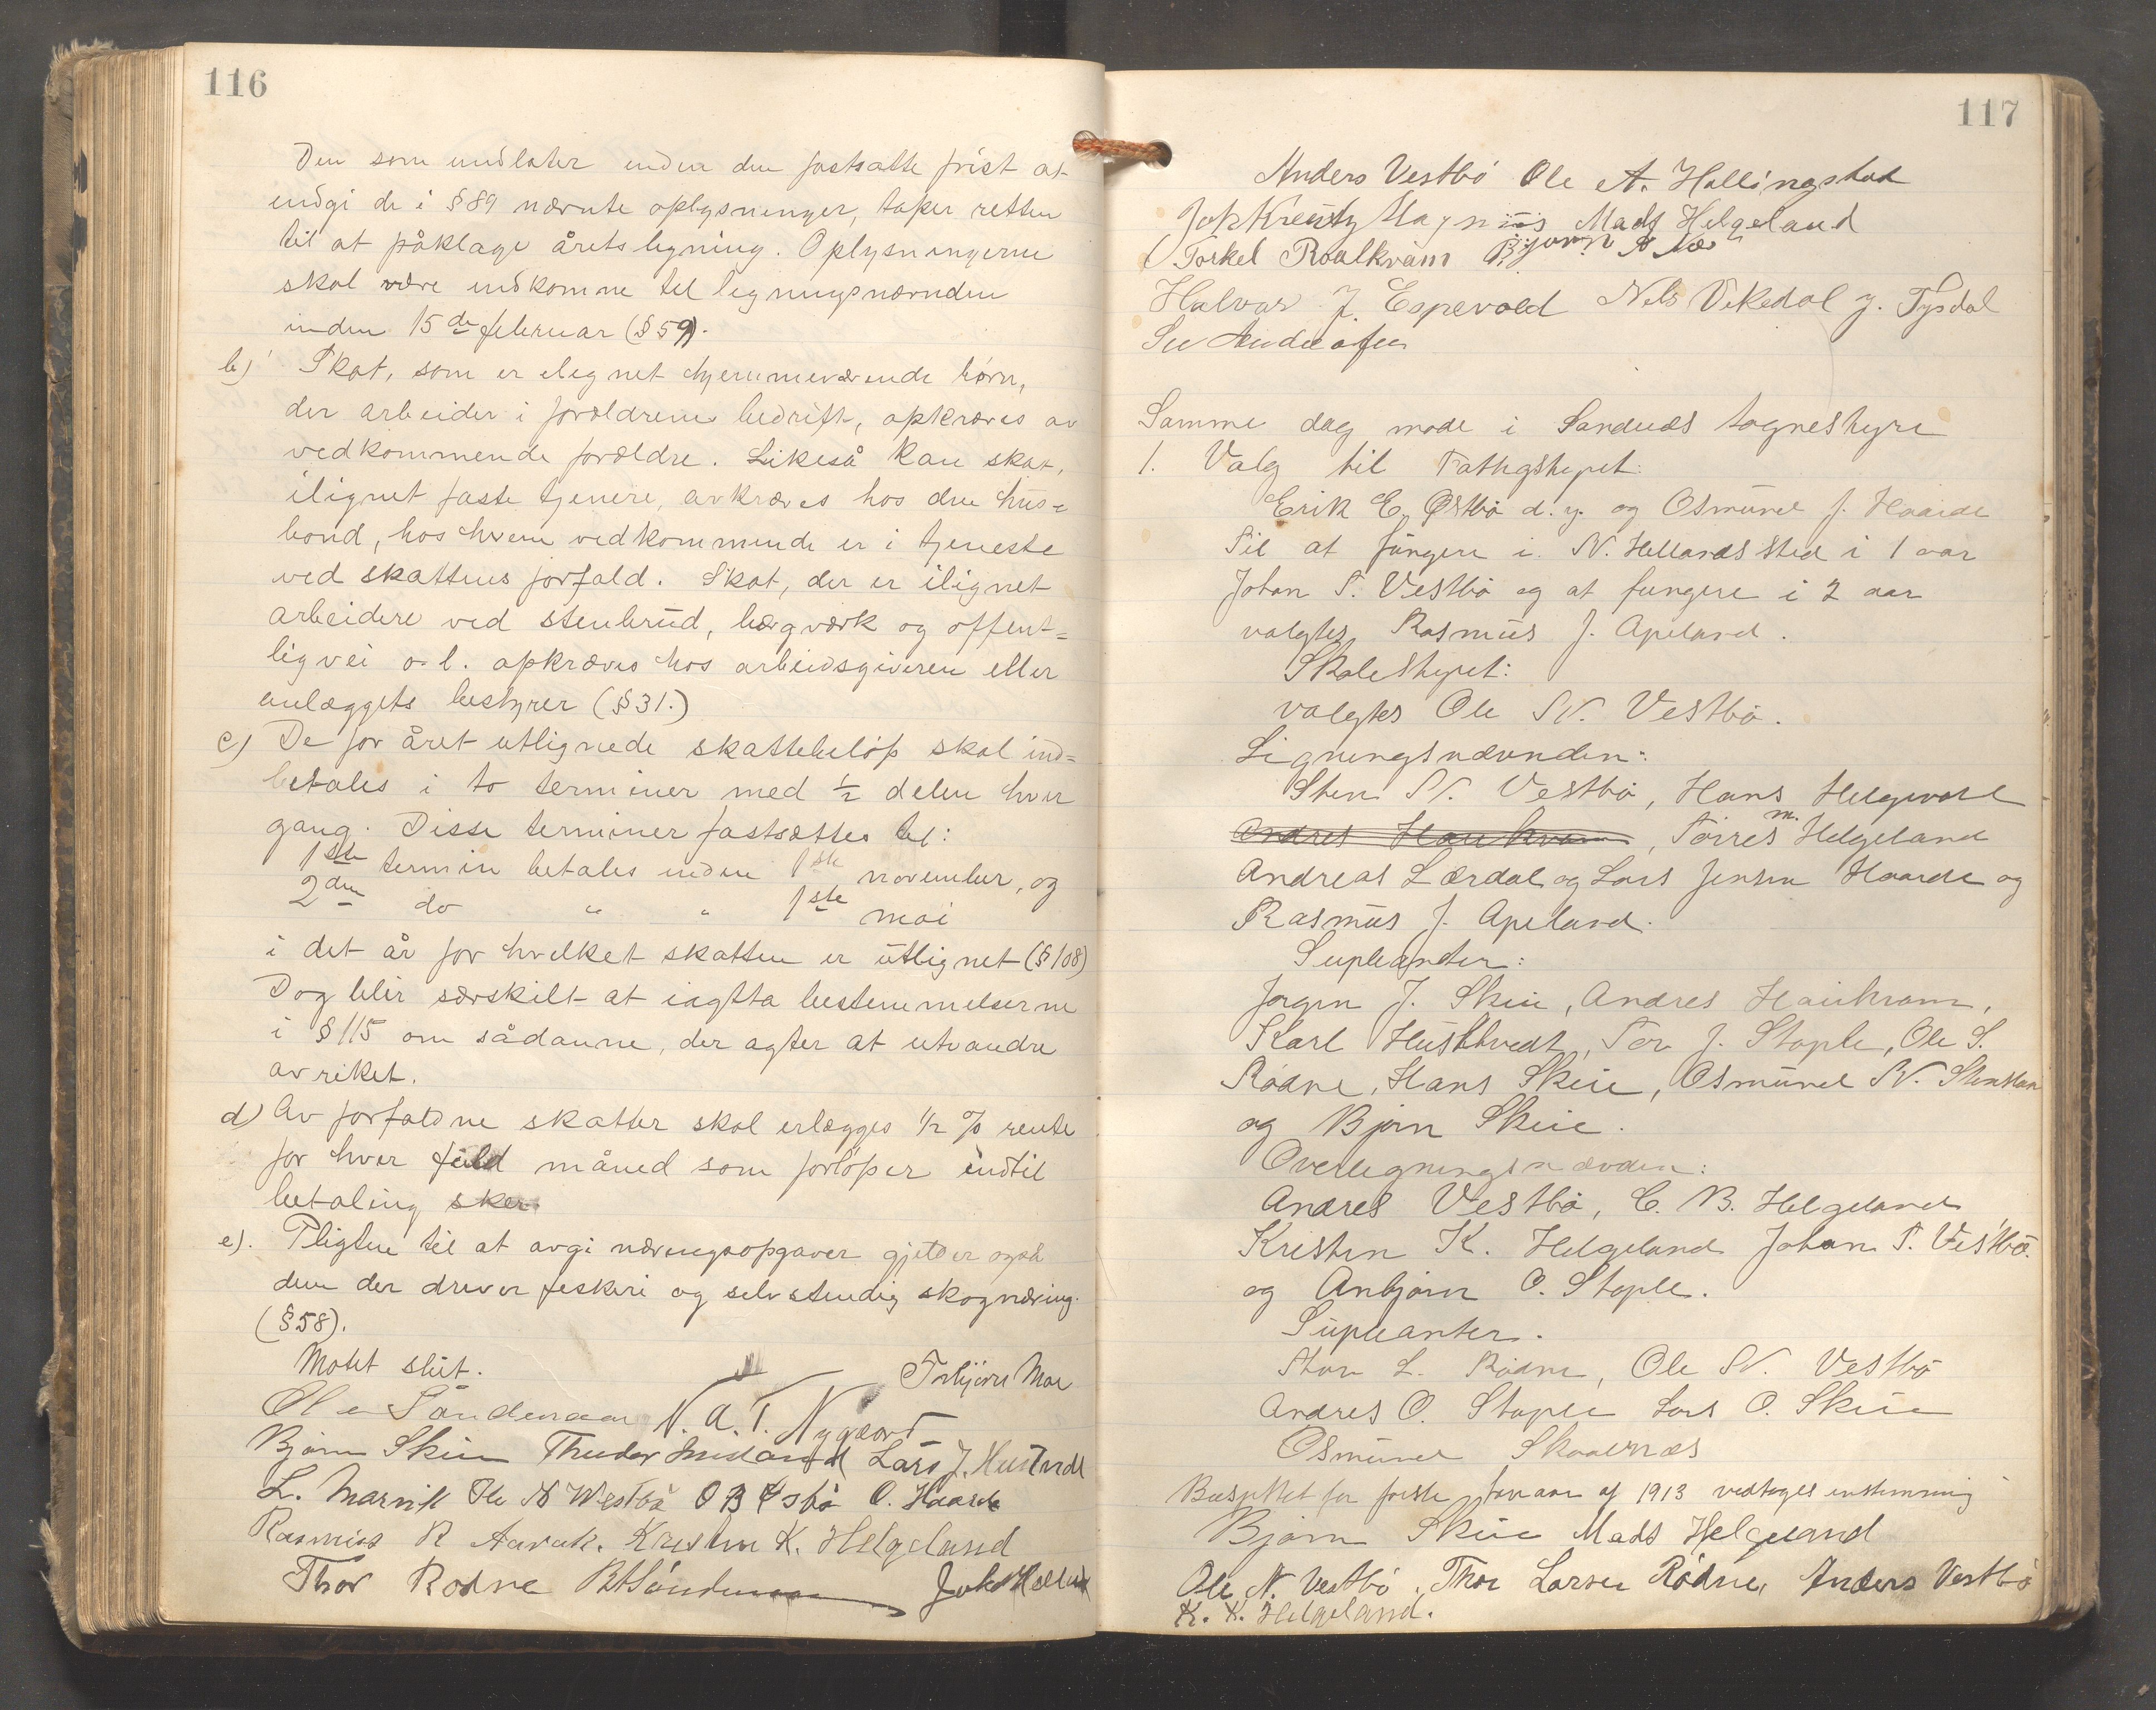 116
Den som undlater inden den fastsatte frist at
indgi de i §89 nævnte oplysninger, taper retten
til at påklage årets ligning. Oplysningerne
skal være indkomne til ligningsnævnden
inden 15de februar (§59).
b) Skat, som er ilegnet hjemmeværende börn,
der arbeider i forældrenes bedrift, opkræves av
vedkommende forældre. Likeså kan skat,
ilignet faste tjenere, avkræves hos den hus=
bond, hos hvem vedkommende er i tjeneste
ved skattens forfald. Skat, der er ilignet
arbeidere ved stenbrud, bergværk og offent=
lig vei o. l. opkræves hos arbeidsgiveren eller
anlæggets bestyrer (§31.)
c) De for året utlignede skattebelöp skal ind=
betales i to terminer med ½ delen hver
gang. Disse terminer fastsættes til:
1ste termin betales inden 1ste november, og
2den do " " 1ste mai
i det år for hvilket skatten er utlignet (§108)
Dog blir særskilt at iagtta bestemmelserne
i §115 om sådanne, der agter at utvandre
av riket.
d) Av forfaldne skatter skal erlægges ½ % rente
for hver fuld måned som forlöper indtil
betaling sker.
e). Pligten til at avgi næringsopgaver gjelder også
dem der driver fiskeri og selvstendig skognæring.
(§58).
Mötet slut. Torbjörn Moe
Ole Söndenaa N. A. T. Nygaard
Björn Skeie Theodor Lars J. Hustvedt
L. Marvik Ole N Westbö O B Østbö O. Haarde
Rasmus R Aarvik. Kristen K. Helgeland
Thor Rödne Söndenaa
117
Anders Vestbö Ole A. Hallingstad
Magnus Mads Helgeland
Torkel Roalkvam Bjørn
Halvar J. Espevold Nels Vikedal J. Tysdal
Samme dag möde i Sandnæs sognestyre
1. Valg til Fattigstyret:
Erik E. Østbö d. y. og Osmund J. Haarde
Til at fungere i N. Hellands sted i 1 aar
Johan T. Vestbö og at fungere i 2 aar
valgtes Rasmus J. Apeland.
Skolestyret:
valgtes Ole N. Vestbö.
Ligningsnævnden:
Sten N. Vestbö, Hans Helgevold
Andres Haukvam, Törres m. Helgeland
Andreas Lærdal og Lars Jensen Haarde og
Rasmus J. Apeland.
Supleanter:
Jørgen J. Skeie, Andres Haukvam,
Karl Hustvedt, Tor J. Stople, Ole S.
Rödne, Hans Skeie, Osmund N.
og Björn Skeie.
Overligningsnævnden:
Andres Vestbö, C. B. Helgeland
Kristen K. Helgeland Johan T. Vestbö.
og Anbjörn O. Stople.
Supleanter.
Thor L. Rödne, Ole N. Vestbö
Andres O. Stople Lars O. Skeie
Osmund Skaalnæs
Budsjettet for förste halvaar af 1913 vedtoges enstemmig
Björn Skeie Mads Helgeland
Ole N. Vestbö. Thor Larsen Rödne, Anders Vestbö
K. K. Helgeland.